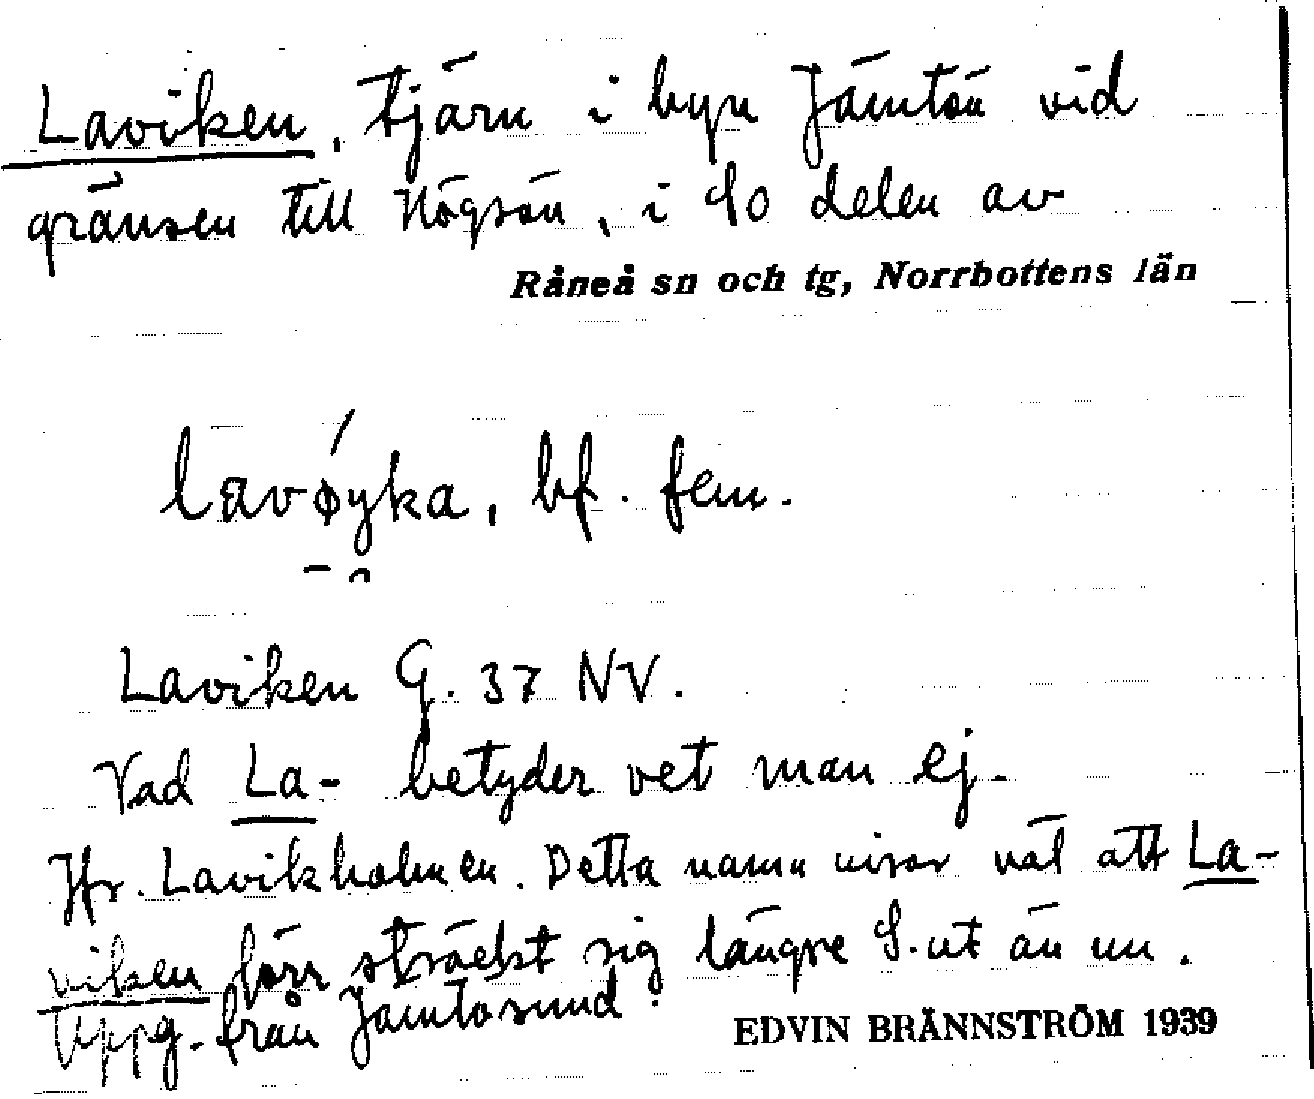 Laviken, tjärn i byn Jämtön vid
gränsen till Högsön, i So delen av
Råneå sn och tg, Norrbottens län
lavøyka, bf. fem.
Laviken G. 37 NV.
Vad La- betyder vet man ej.
Jfr. Lavikholmen. Detta namn visar väl att La-
viken förr sträckt sig längre S. ut än nu.
Uppg. från Jämtösund.
EDVIN BRÄNNSTRÖM 1939